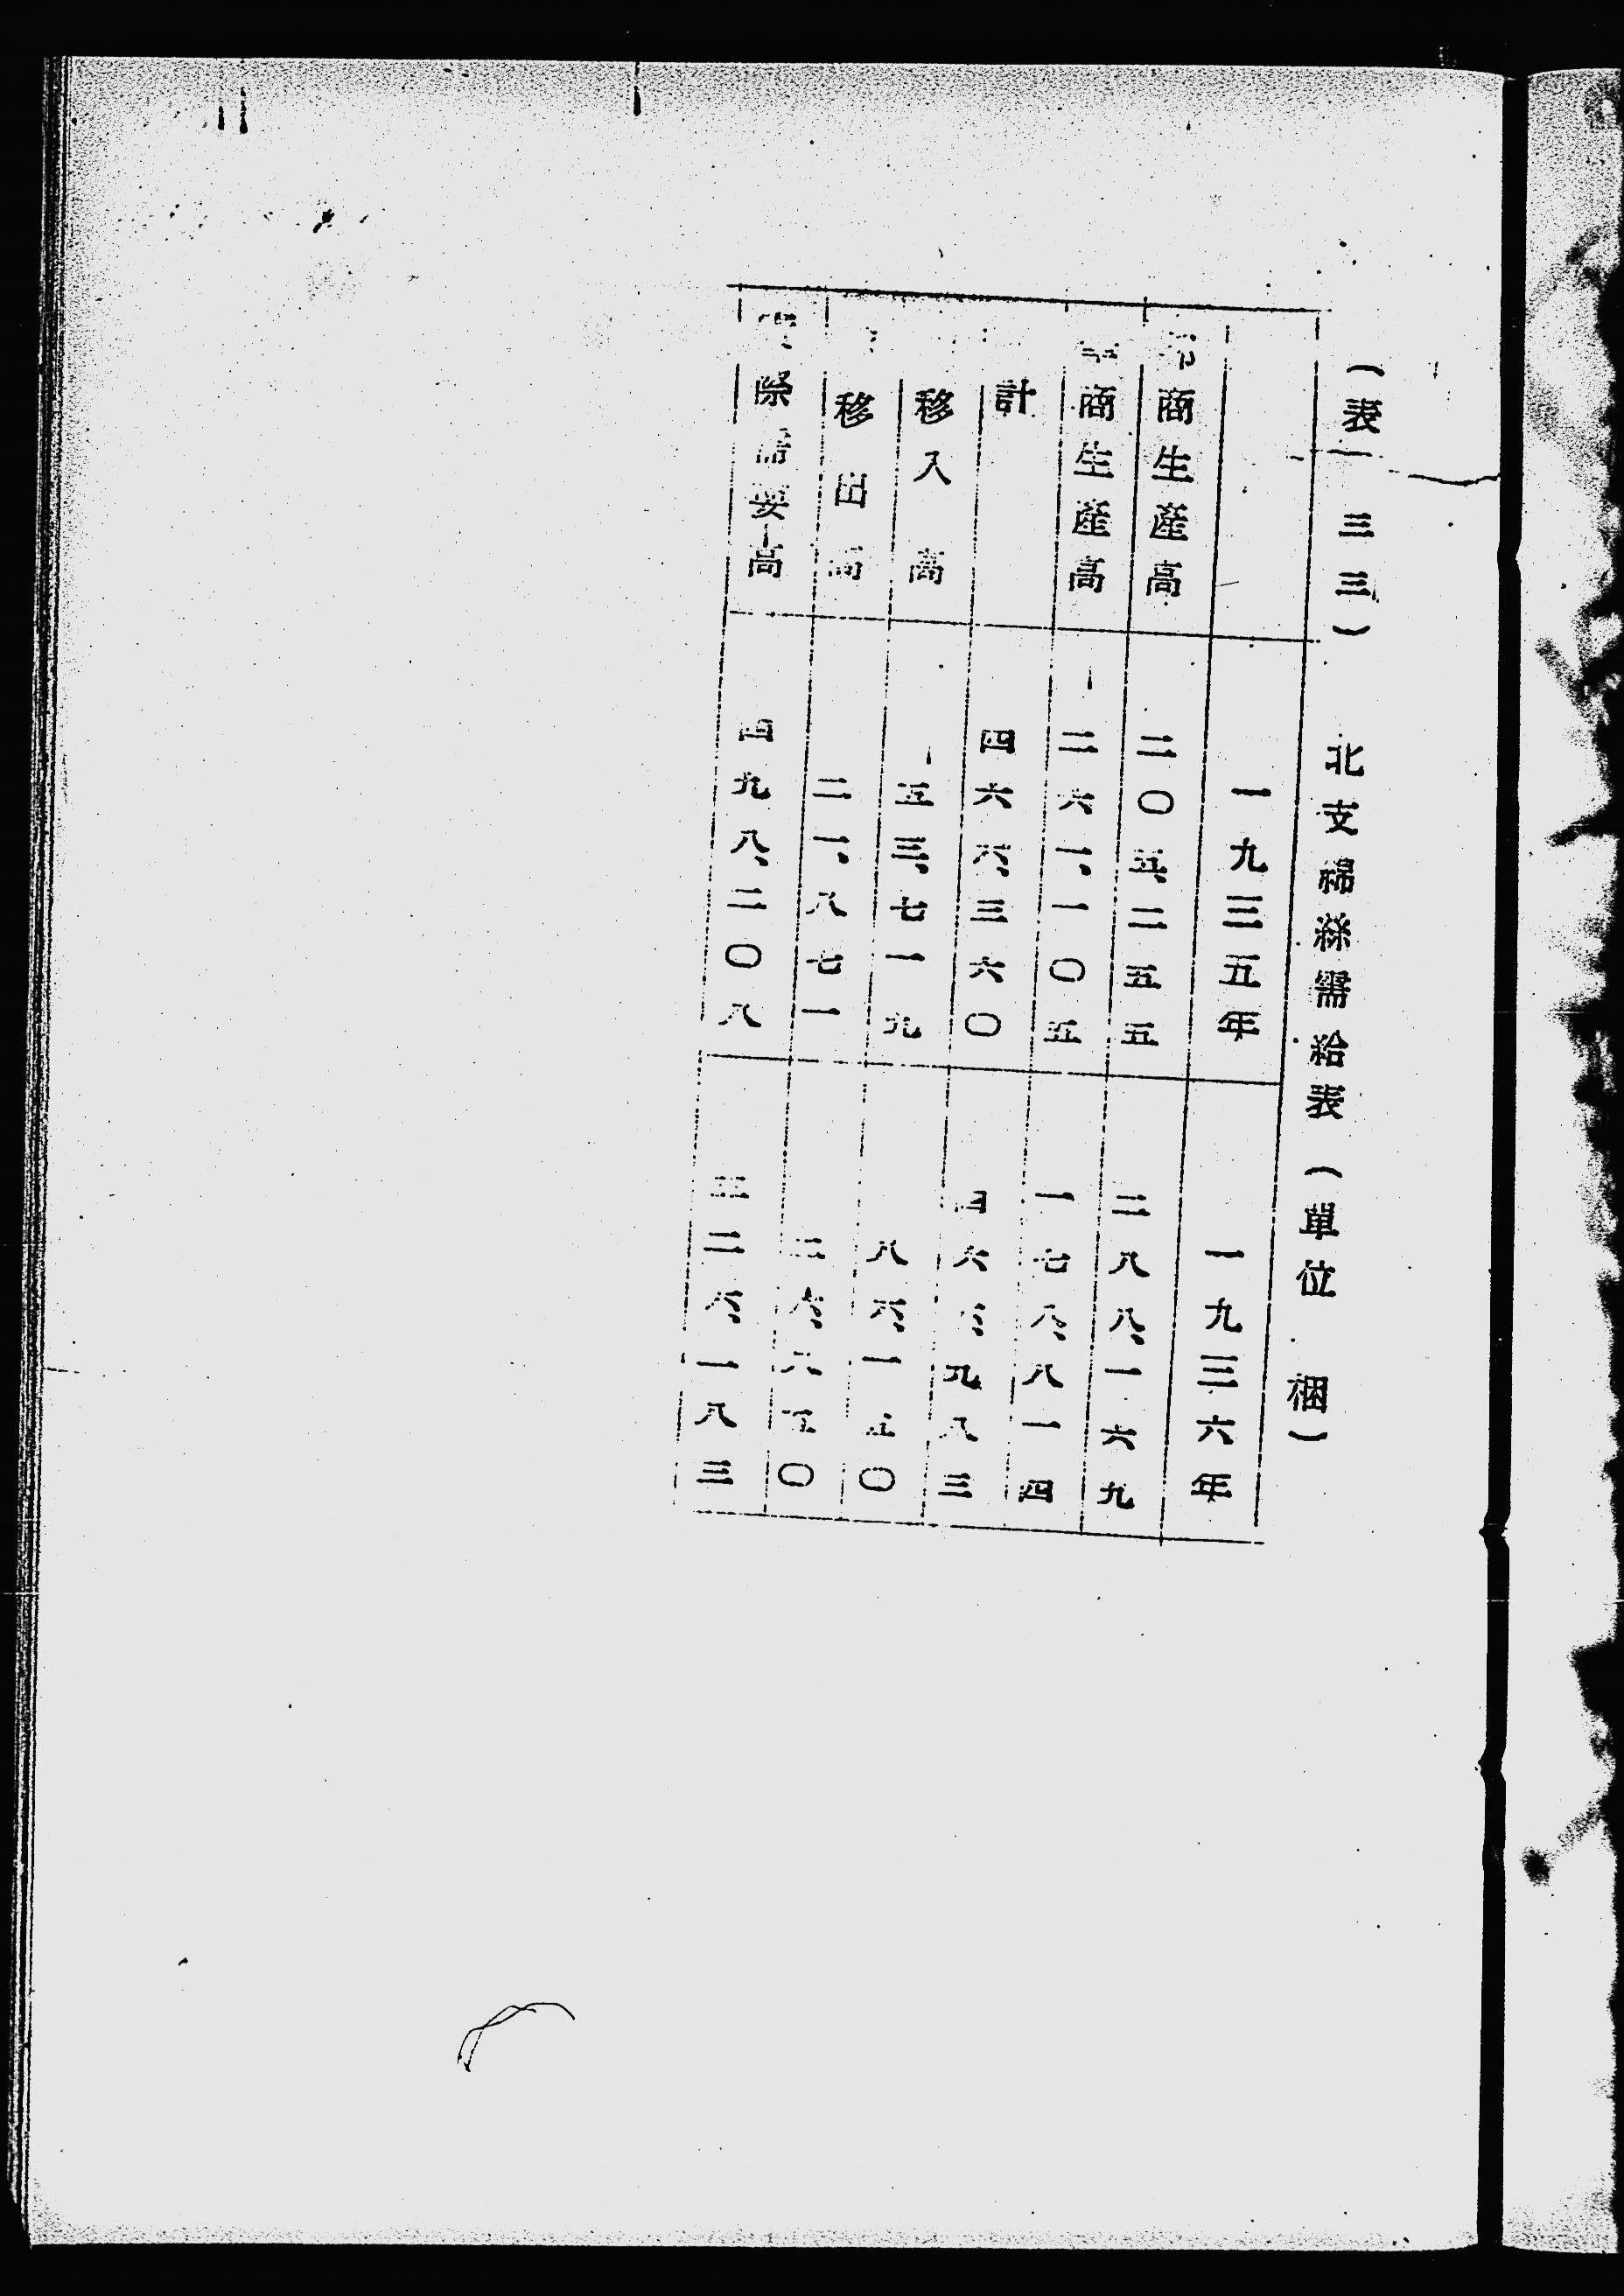 （表一三三）　北支綿絲需給表（單位　梱）
一九三五年　一九三六年
商生産高　二〇五、二五五　二八八、一六九
華商生産高　二六一、一〇五　一七八、八一四
計　四六六、三六〇　四六六、九八三
移入高　五三、七一九　八六、一五〇
移出高　二一、八七一　二六、八五〇
實際需要高　四九八、二〇八　五二六、一八三